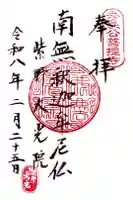 奉拝
南無釈迦牟尼仏
紫野大光院
令和八年二月二十五日
公菩提寺